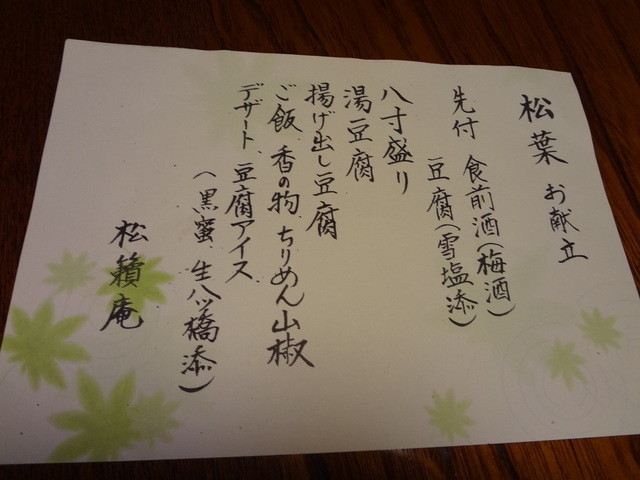 松葉 お献立
先付 食前酒(梅酒)
豆腐(雪塩添)
八寸盛り
湯豆腐
揚げ出し豆腐
ご飯、香の物、ちりめん山椒
デザート 豆腐アイス
(黒蜜、生八ツ橋添)
松籟庵